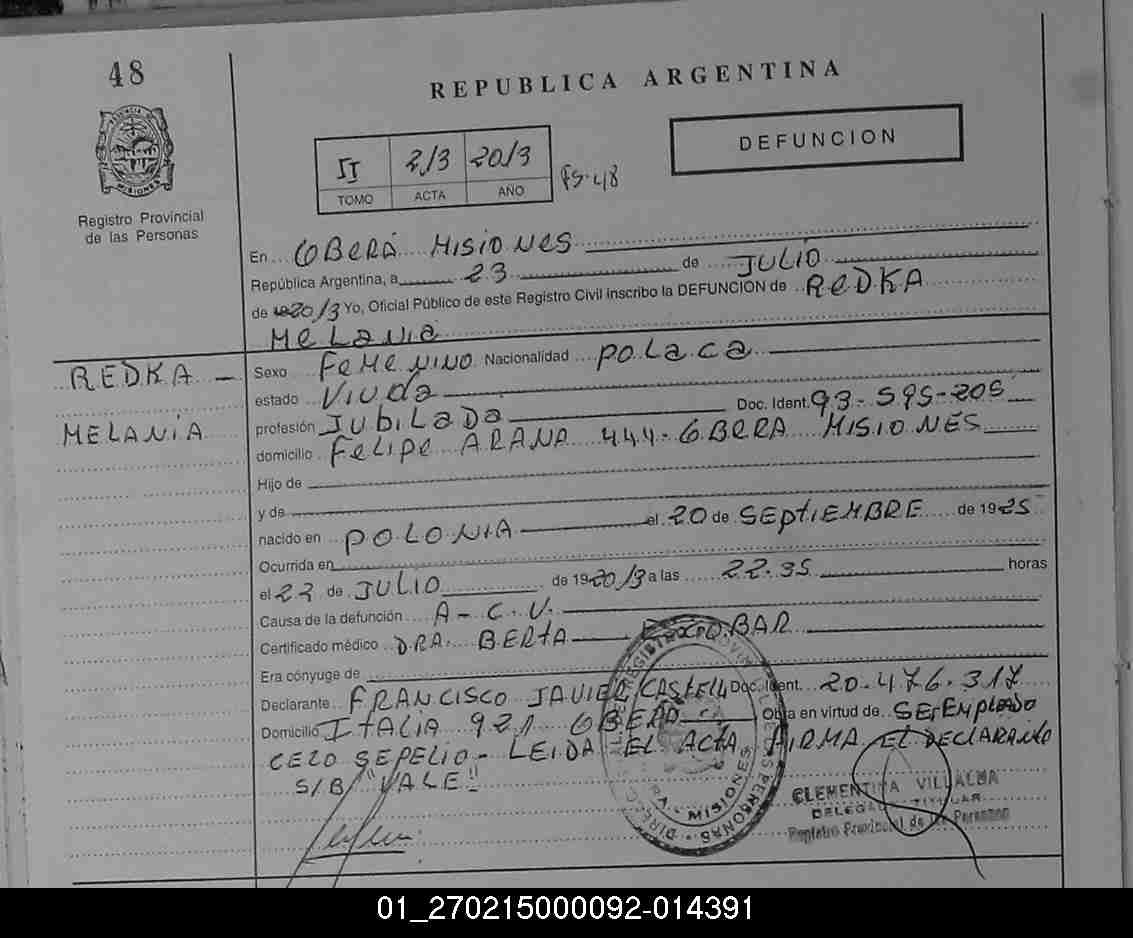 48
REPUBLICA ARGENTINA
DEFUNCION
II 2/3 20/3 FS.48
TOMO ACTA AÑO
PROVINCIA DE MISIONES
Registro Provincial
de las Personas
En OBERÁ MISIONES
República Argentina, a 23 de JULIO
de 20/3 Yo, Oficial Público de este Registro Civil inscribo la DEFUNCION de REDKA
MELANIA
REDKA
MELANIA
Sexo FEMENINO Nacionalidad POLACA
estado VIUDA
profesión JUBILADA Doc. Ident. 93-595-205
domicilio FELIPE ARANA 444-OBERA MISIONES
Hijo de
y de
nacido en POLONIA el 20 de SEPTIEMBRE de 1925
Ocurrida en
el 22 de JULIO de 1920/3 a las 22.35 horas
Causa de la defunción A-C.V.
Certificado médico DRA. BERTA
Era cónyuge de
Declarante FRANCISCO JAVIER CASTELLI Doc. Ident. 20.476.317
Domicilio ITALIA 921 OBERA Obra en virtud de SER EMPLEADO
SEPELIO - LEIDA EL ACTA FIRMA EL DECLARANTE
S/B "VALE"
MISIONES
CLEMENTINA VILLALBA
DELEGADA TITULAR
Registro Provincial de las Personas
01_270215000092-014391